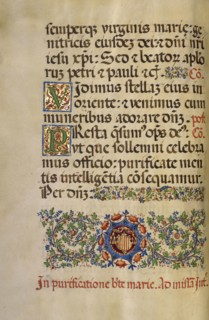 semperq; virginis marie: ge
nitricis eiusdez dei: & dnī nr̄i
iesu xp̄i: Sed & beatoꝝ aplo
rum petri & pauli &c̄. Cō.
Vidimus stellaz eius in
oriente: & venimus cum
muneribus adorare dnȝ. post
Presta qs̄um° op̄s deꝰ: Cō.
vt que sollemni celebra
mus officio: purificate men
tis intelligentia cōsequamur.
Per dnȝ:
In purificatione bt̄e marie. Ad missā Int.